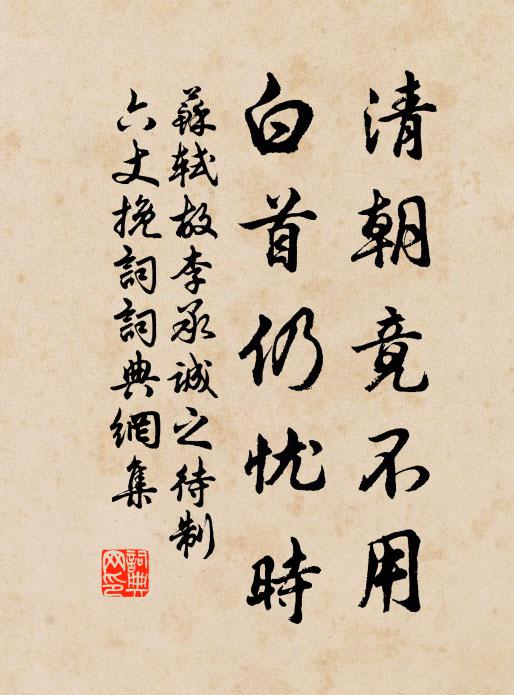 清朝竟不用
白首仍忧時
蘇軾故李承誠之待制
六丈挽詞詞典網集
詞典网印